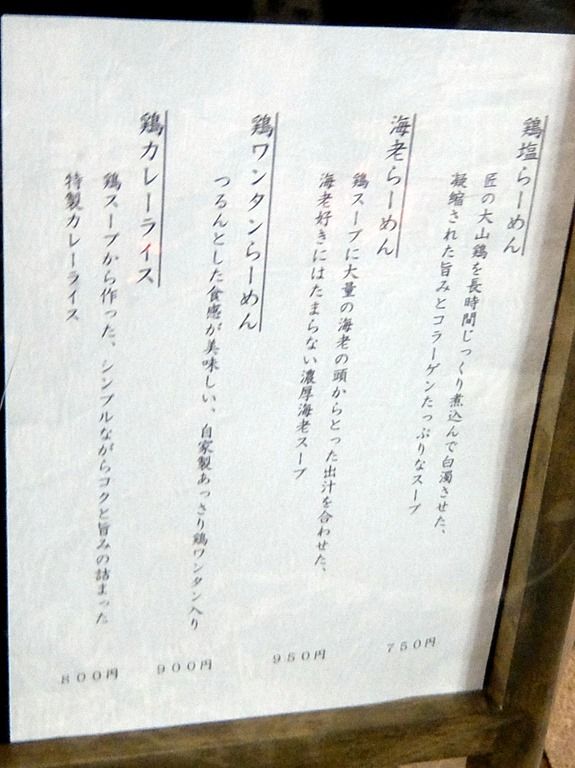 鶏塩らーめん
匠の大山鶏を長時間じっくり煮込んで白濁させた、
凝縮された旨みとコラーゲンたっぷりなスープ
750円
海老らーめん
鶏スープに大量の海老の頭からとった出汁を合わせた、
海老好きにはたまらない濃厚海老スープ
950円
鶏ワンタンらーめん
つるんとした食感が美味しい、自家製あっさり鶏ワンタン入り
900円
鶏カレーライス
鶏スープから作った、シンプルながらコクと旨みの詰まった
特製カレーライス
800円